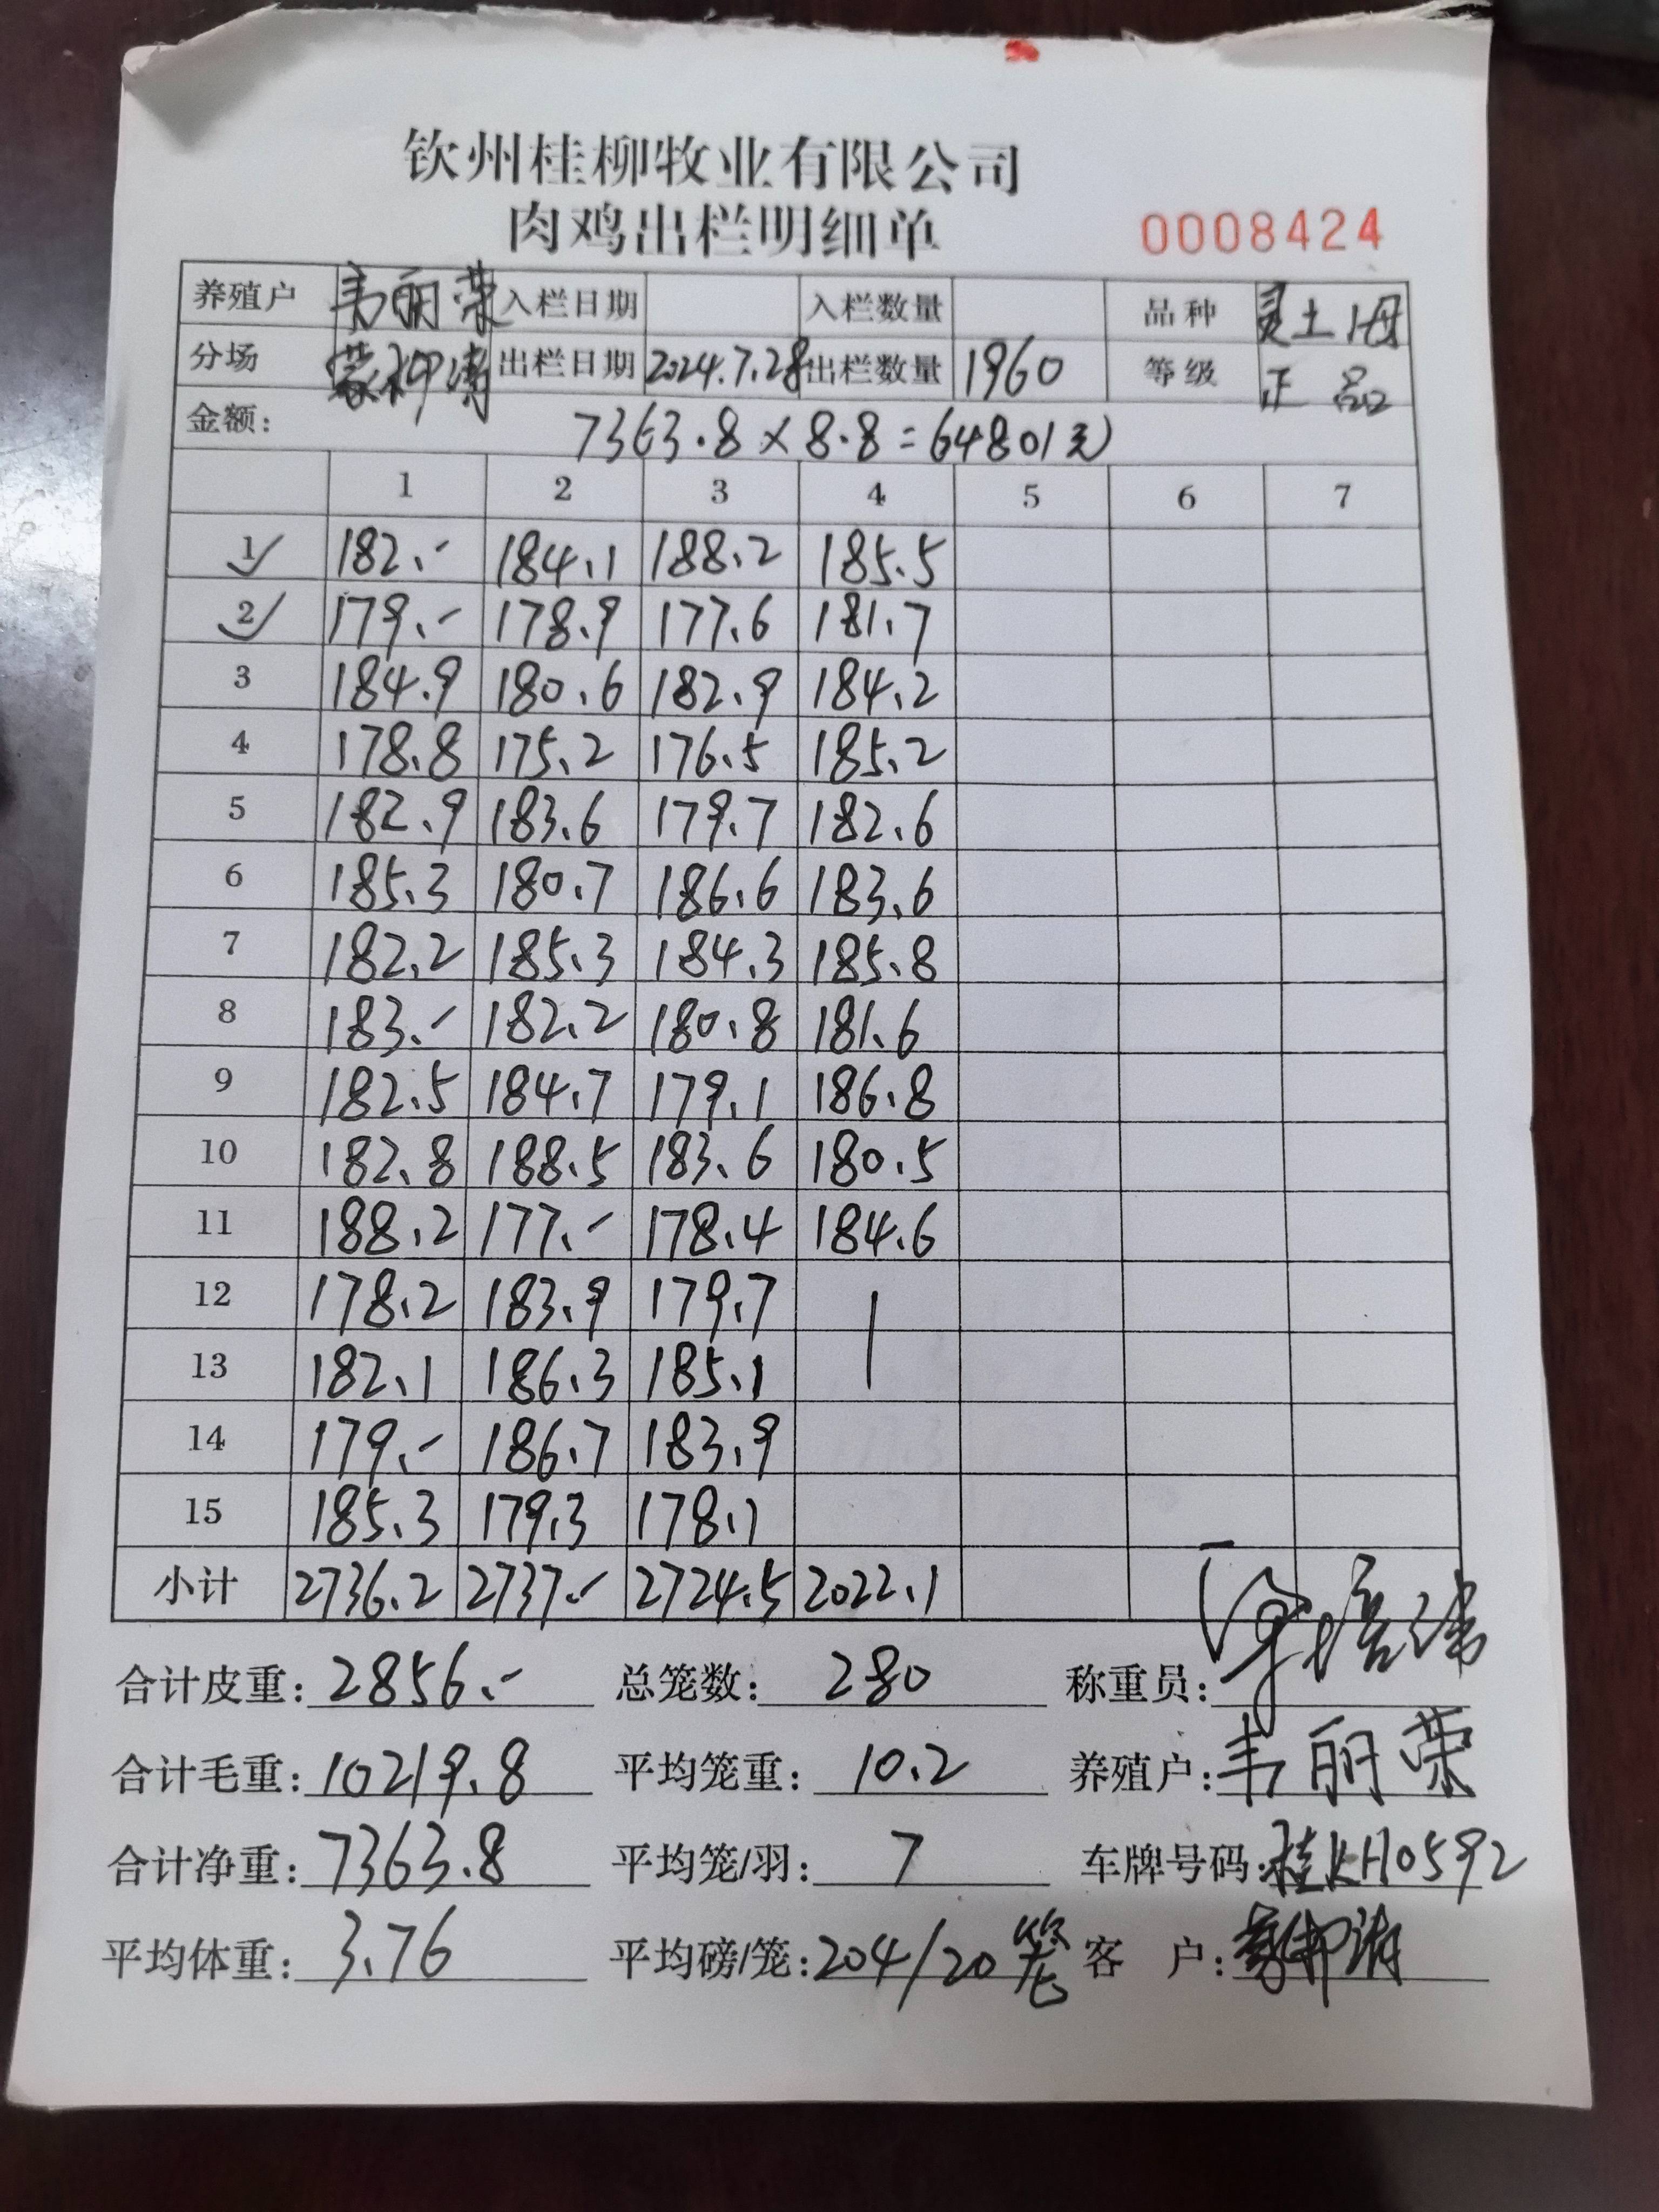 钦州桂柳牧业有限公司
肉鸡出栏明细单
0008424
养殖户 韦丽荣 入栏日期 入栏数量 品种 灵土1母
分场 出栏日期 2024.7.28 出栏数量 1960 等级 正品
金额: 7363.8×8.8=64801元
1 2 3 4 5 6 7
1 182.- 184.1 188.2 185.5
2 179.- 178.9 177.6 181.7
3 184.9 180.6 182.9 184.2
4 178.8 175.2 176.5 185.2
5 182.9 183.6 179.7 182.6
6 185.3 180.7 186.6 183.6
7 182.2 185.3 184.3 185.8
8 183.- 182.2 180.8 181.6
9 182.5 184.7 179.1 186.8
10 182.8 188.5 183.6 180.5
11 188.2 177.- 178.4 184.6
12 178.2 183.9 179.7
13 182.1 186.3 185.1
14 179.- 186.7 183.9
15 185.3 179.3 178.1
小计 2736.2 2737.- 2724.5 2022.1
合计皮重: 2856.- 总笼数: 280 称重员:
合计毛重: 10219.8 平均笼重: 10.2 养殖户: 韦丽荣
合计净重: 7363.8 平均笼/羽: 7 车牌号码: 桂KH0592
平均体重: 3.76 平均磅/笼: 204/20笼 客 户: